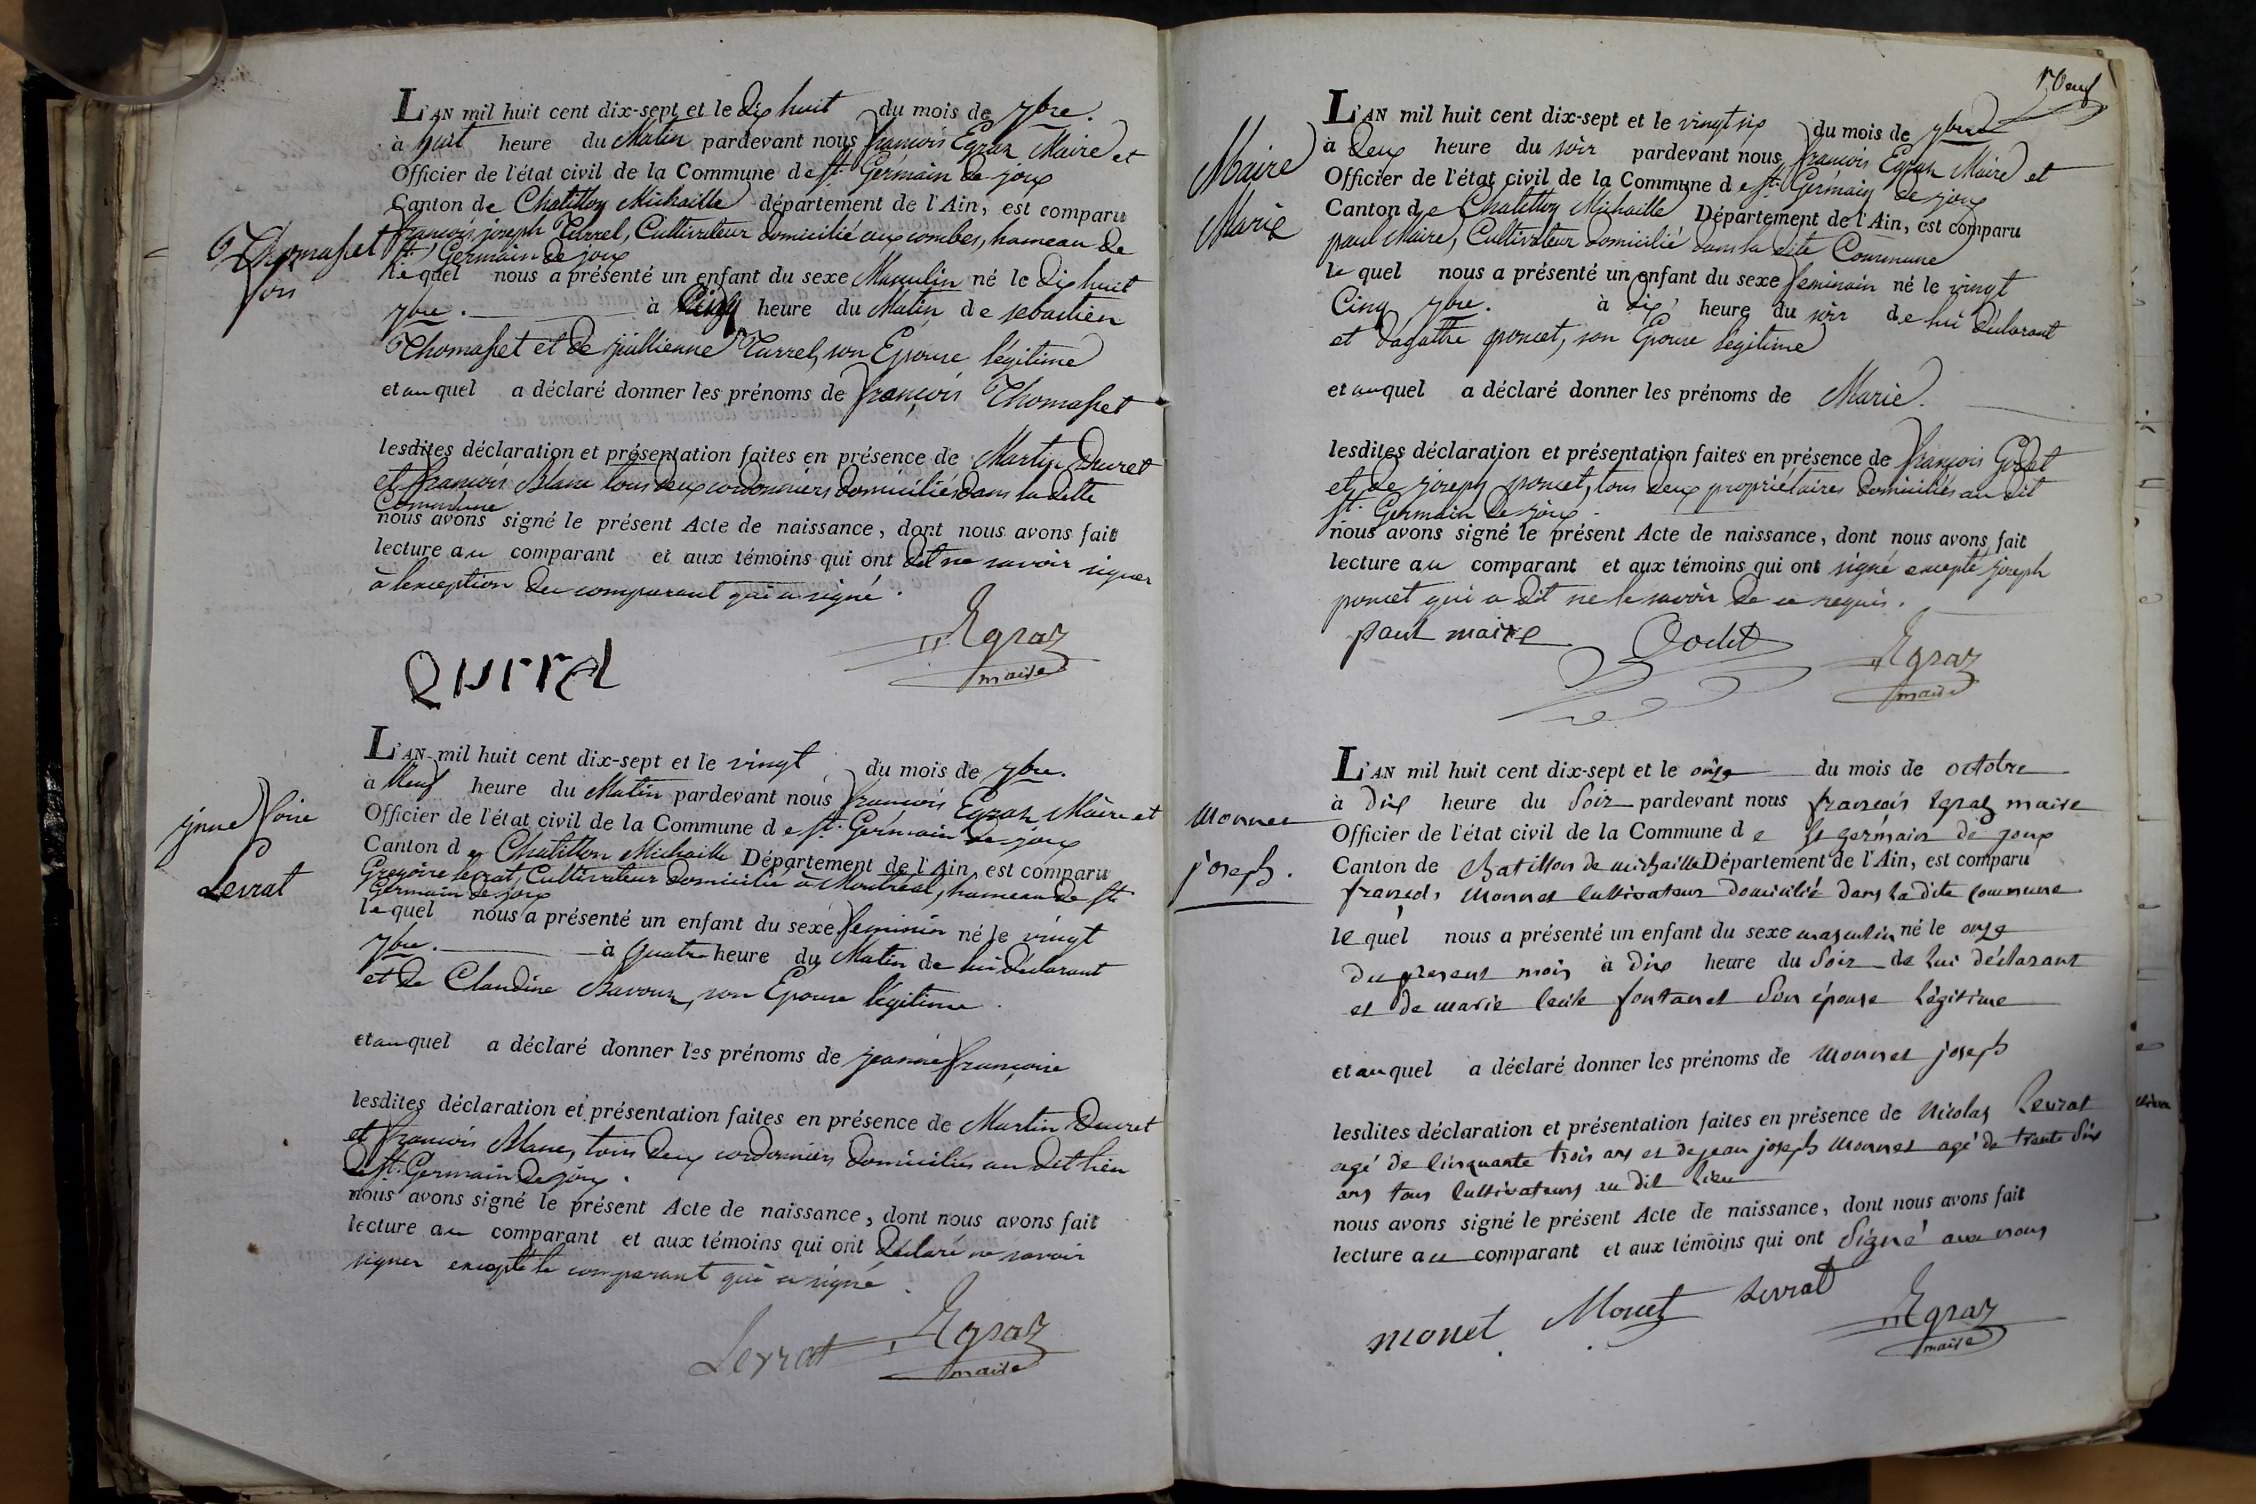 L'AN mil huit cent dix-sept et le dix huit du mois de 7bre.
à huit heure du Matin pardevant nous françois Egraz Maire et
Officier de l'état civil de la Commune de St. Germain de joux
Canton de Chatillon Michaille département de l'Ain, est comparu
françois joseph Turrel, Cultivateur domicilié aux combes, hameau de
St. Germain de joux
le quel nous a présenté un enfant du sexe Masculin né le dix huit
7bre. à heure du Matin de sebastien
Thomasset et de jullienne Turrel, son Epouse légitime
et auquel a déclaré donner les prénoms de françois Thomasset
lesdites déclaration et présentation faites en présence de Martin Ducret
et françois Blanc tous deux cordonniers domiciliés dans la ditte
Commune
nous avons signé le présent Acte de naissance, dont nous avons fait
lecture au comparant et aux témoins qui ont dit ne savoir signer
à l'exception du comparant qui a signé.
Thomasset
fois
Egraz
maire
Turrel
L'AN mil huit cent dix-sept et le vingt du mois de 7bre.
à Neuf heure du Matin pardevant nous françois Egraz Maire et
Officier de l'état civil de la Commune de St. Germain de joux
Canton de Chatillon Michaille Département de l'Ain, est comparu
Gregoire levrat, Cultivateur domicilié à Montreal, hameau de St.
Germain de joux
le quel nous a présenté un enfant du sexe feminin né le vingt
7bre. à quatre heure du Matin de lui déclarant
et de Claudine Bavoux, son Epouse légitime.
et auquel a déclaré donner les prénoms de jeanne françoise
lesdites déclaration et présentation faites en présence de Martin Ducret
et françois Blanc, tous deux cordonniers domiciliés au dit lieu
de St. Germain de joux.
nous avons signé le présent Acte de naissance, dont nous avons fait
lecture au comparant et aux témoins qui ont déclaré ne savoir
signer excepté le comparant qui a signé.
jnne foise
Levrat
Levrat Egraz
maire
Neuf
L'AN mil huit cent dix-sept et le vingt six du mois de 7bre
à deux heure du soir pardevant nous françois Egraz Maire et
Officier de l'état civil de la Commune de St. Germain de joux
Canton de Chatillon Michaille Département de l'Ain, est comparu
paul Maire, Cultivateur domicilié dans la dite Commune
le quel nous a présenté un enfant du sexe feminin né le vingt
Cinq 7bre. à dix heure du soir de lui déclarant
et d'agathe poncet, son Epouse légitime
et auquel a déclaré donner les prénoms de Marie.
lesdites déclaration et présentation faites en présence de françois Godet
et de joseph poncet, tous deux propriétaires domiciliés au dit
St. Germain de joux.
nous avons signé le présent Acte de naissance, dont nous avons fait
lecture au comparant et aux témoins qui ont signé excepté joseph
poncet qui a dit ne le savoir de ce requis.
Maire
Marie
paul maire Godet Egraz
maire
L'AN mil huit cent dix-sept et le onze du mois de octobre
à dix heure du Soir pardevant nous françois Egraz maire
Officier de l'état civil de la Commune de St germain de joux
Canton de Chatillon de michaille Département de l'Ain, est comparu
françois Monnet Cultivateur domicilié dans la dite commune
le quel nous a présenté un enfant du sexe masculin né le onze
du present mois à dix heure du Soir de lui déclarant
et de marie fontanet Son épouse légitime
et auquel a déclaré donner les prénoms de Monnet joseph
lesdites déclaration et présentation faites en présence de Nicolas Levrat
agé de Cinquante trois ans et de jean joseph Monnet agé de trente Six
ans tous Cultivateurs au dit lieu
nous avons signé le présent Acte de naissance, dont nous avons fait
lecture au comparant et aux témoins qui ont Signé avec nous
Monnet
joseph.
monet Monet Levrat Egraz
maire